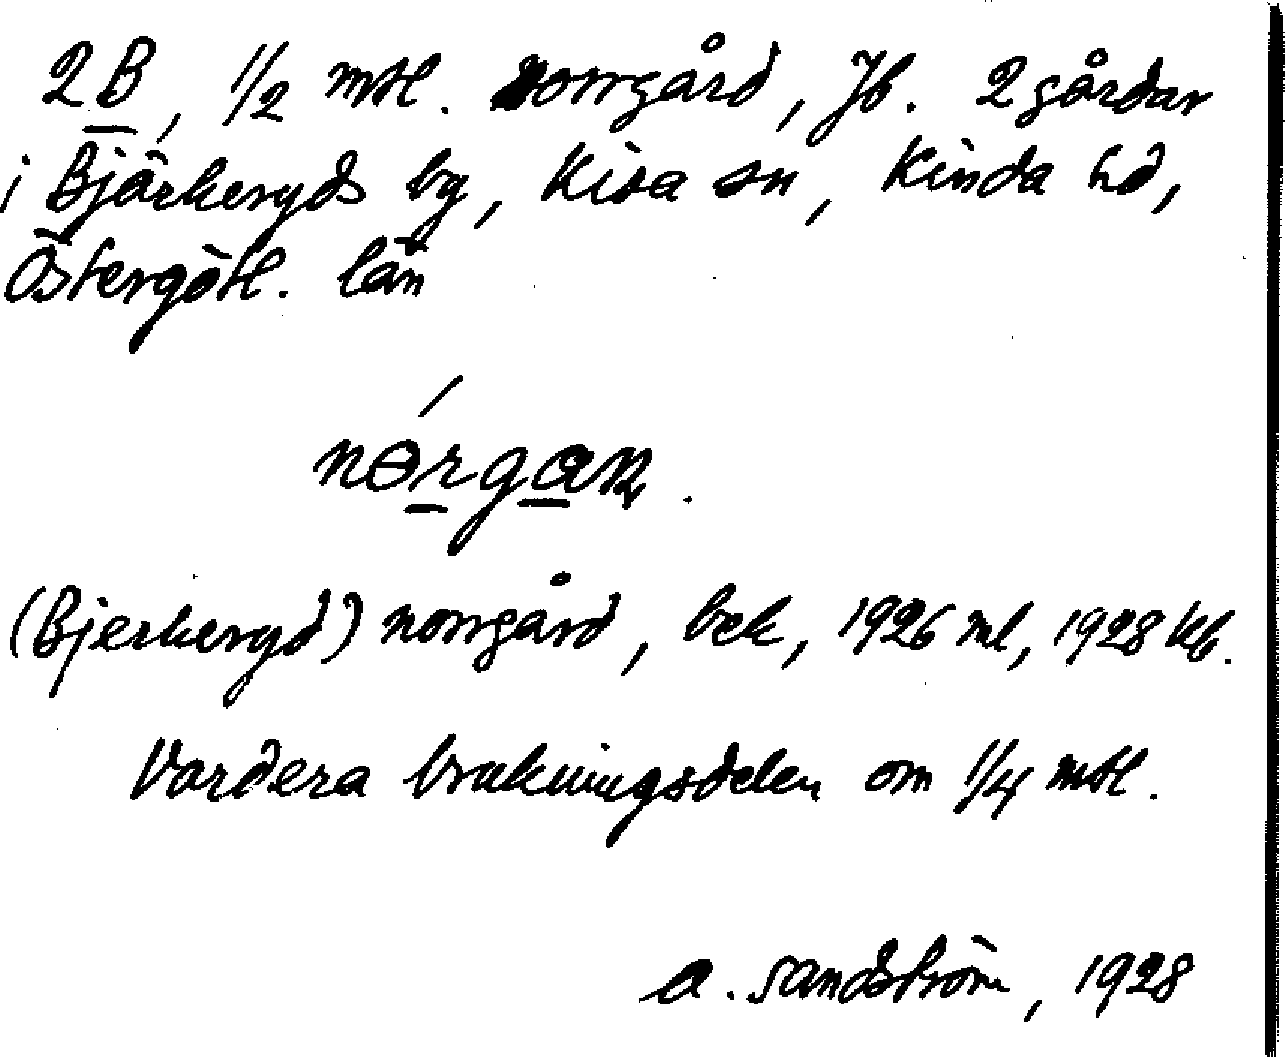 2B, 1/2 mtl. Norrgård, Jb. 2 gårdar
i Bjärkeryds by, Kisa sn, Kinda hd,
Östergötl. län
nɵ́rgan.
(Bjerkeryd) Norrgård, bek, 1926 ml, 1928 kb.
Vardera brukningsdelen om 1/4 mtl.
A. Sandström, 1928